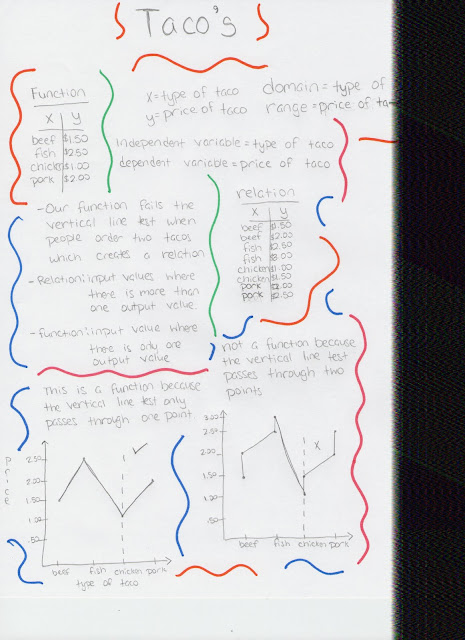 Taco's
Function
x y
beef $1.50
fish $2.50
chicken $1.00
pork $2.00
x=type of taco
y=price of taco
domain = type of
range = price of ta
independent variable = type of taco
dependent variable = price of taco
-Our function fails the
vertical line test when
people order two tacos
which creates a relation
-Relation: input values where
there is more than
one output value.
-function: input value where
there is only one
output value
relation
x y
beef $1.50
beef $2.00
fish $2.50
fish $3.00
chicken $1.00
chicken $1.50
pork $2.00
pork $2.50
This is a function because
the vertical line test only
passes through one point.
Price
2.50
2.00
1.50
1.00
.50
beef fish chicken pork
type of taco
not a function because
the vertical line test
passes through two
points
3.00
2.50
2.00
1.50
1.00
.50
x
beef fish chicken pork